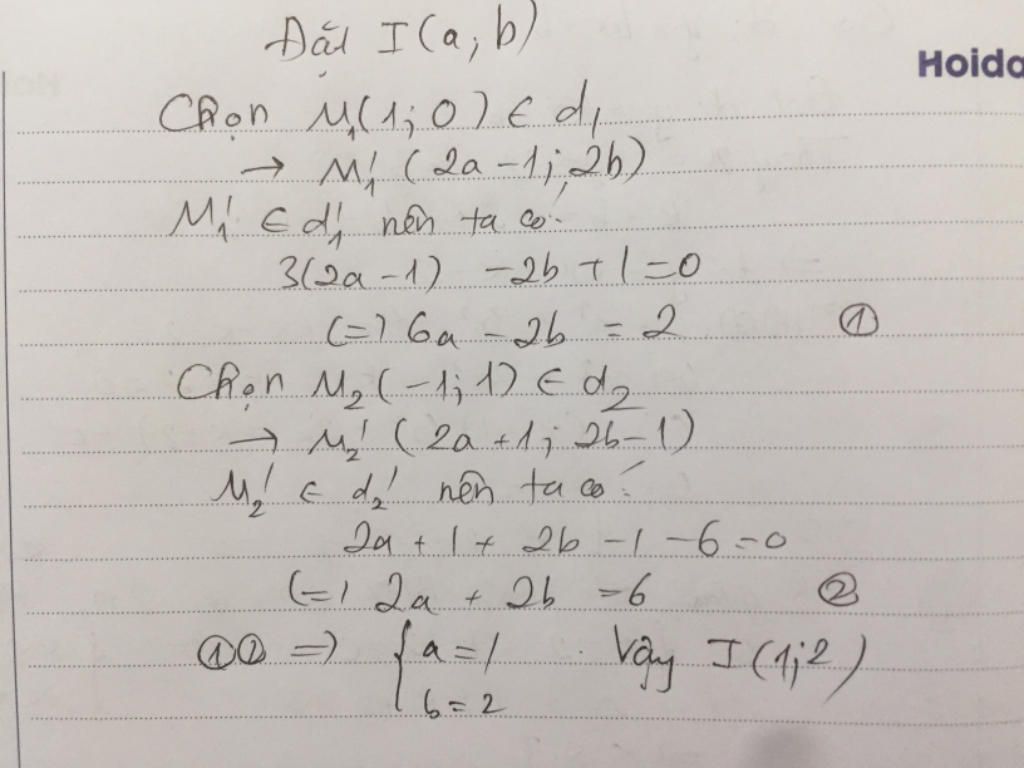 Đặt I(a; b)
Hoido
Chọn M₁(1; 0) ∈ d₁
→ M₁' (2a - 1; 2b)
M₁' ∈ d₁' nên ta có:
3(2a - 1) - 2b + 1 = 0
(=) 6a - 2b = 2 ①
Chọn M₂(-1; 1) ∈ d₂
→ M₂' (2a + 1; 2b - 1)
M₂' ∈ d₂' nên ta có:
2a + 1 + 2b - 1 - 6 = 0
(=) 2a + 2b = 6 ②
①② =) { a = 1 Vậy I(1; 2)
b = 2